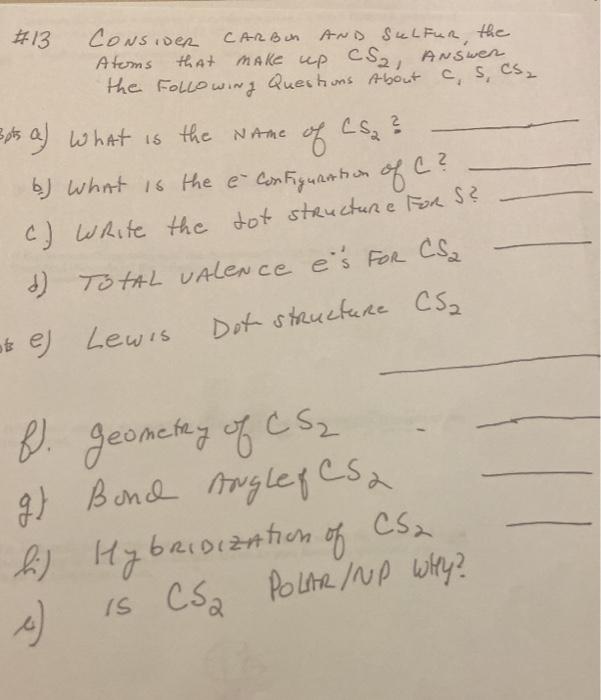 #13 CONSIDER CARBON AND SULFUR, the
Atoms that MAKE up CS2, ANSWER
the Following Questions About C, S, CS2
a) What is the NAME of CS2?
b) What is the e- Configuration of C?
c) WRite the dot structure For S?
d) TOTAL VALENCE e-'s FOR CS2
e) Lewis Dot structure CS2
f). geometry of CS2
g) Bond Angle of CS2
h) HybRIDIZAtion of CS2
is CS2 POLAR/NP WHY?